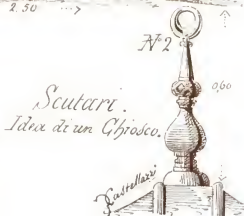 2.50
Nº 2
0,60
Scutari.
Idea di un Ghiosco.
Castellazzi